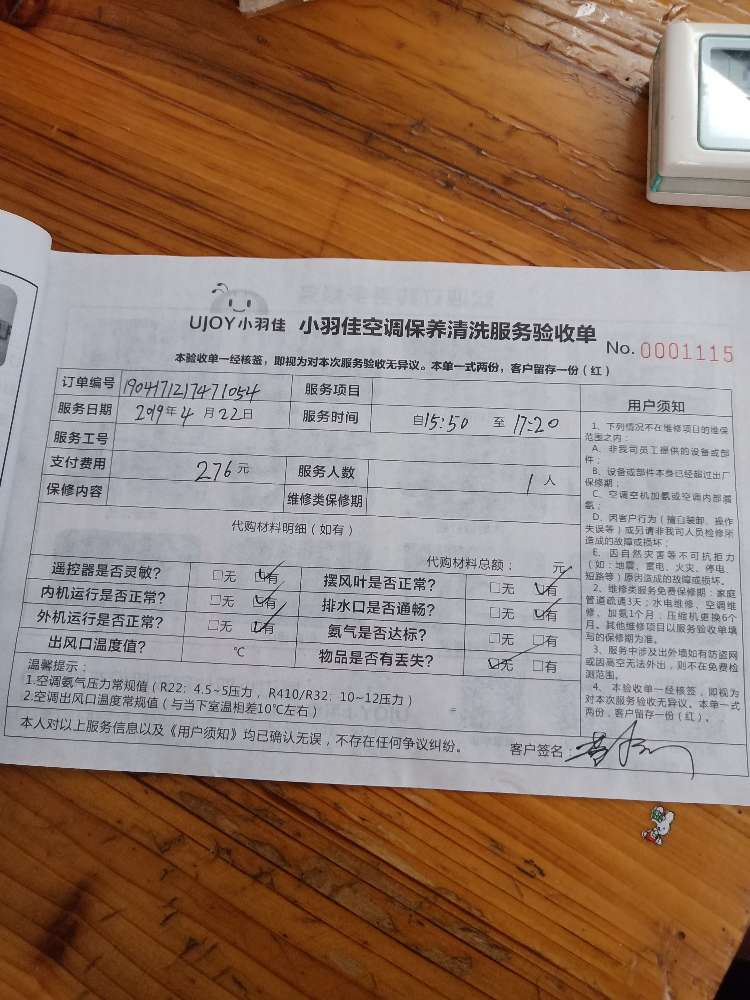 UJOY小羽佳 小羽佳空调保养清洗服务验收单 No. 0001115
本验收单一经核签，即视为对本次服务验收无异议。本单一式两份，客户留存一份（红）
订单编号 1904171217471054 服务项目
服务日期 2019年4月22日 服务时间 自15:50 至 17:20
服务工号
支付费用 276元 服务人数 1人
保修内容 维修类保修期
代购材料明细（如有）
代购材料总额： 元
遥控器是否灵敏？ □无 □有 摆风叶是否正常？ □无 □有
内机运行是否正常？ □无 □有 排水口是否通畅？ □无 □有
外机运行是否正常？ □无 □有 氨气是否达标？ □无 □有
出风口温度值？ ℃ 物品是否有丢失？ □无 □有
温馨提示：
1.空调氨气压力常规值（R22：4.5~5压力，R410/R32：10~12压力）
2.空调出风口温度常规值（与当下室温相差10℃左右）
本人对以上服务信息以及《用户须知》均已确认无误，不存在任何争议纠纷。 客户签名：
用户须知
1、下列情况不在维修项目的维保
范围之内：
A、非我司员工提供的设备或部
件；
B、设备或部件本身已经超过出厂
保修期；
C、空调空机加氨或空调内部漏
氨；
D、因客户行为（擅自装卸、操作
失误等）或另请非我司人员检修所
造成的故障或损坏；
6、因自然灾害等不可抗拒力
（如：地震、雷电、火灾、停电、
短路等）原因造成的故障或损坏。
2、维修类服务免费保修期：家庭
管道疏通3天；水电维修、空调维
修、加氨1个月；压缩机更换6个
月。其他维修项目以服务验收单填
写的保修期为准。
3、服务中涉及出外墙如有防盗网
或因高空无法外出，则不在免费检
测范围。
4、本验收单一经核签，即视为
对本次服务验收无异议。本单一式
两份，客户留存一份（红）。